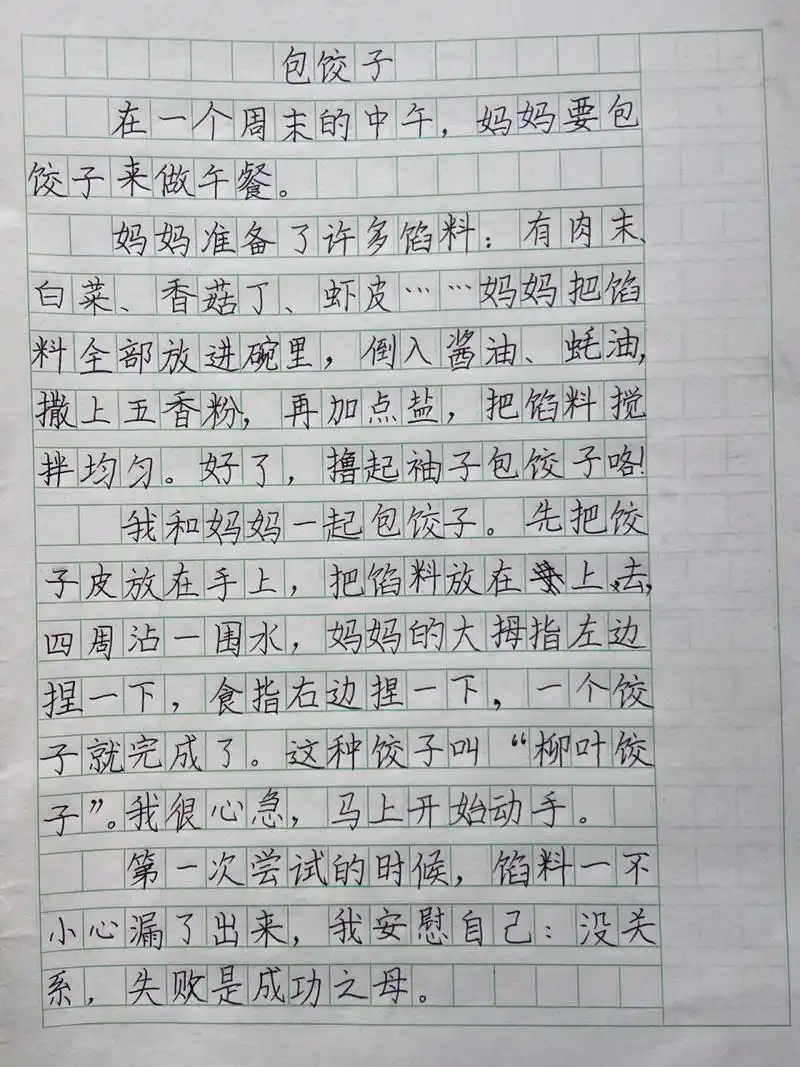 包饺子
在一个周末的中午，妈妈要包
饺子来做午餐。
妈妈准备了许多馅料：有肉末、
白菜、香菇丁、虾皮……妈妈把馅
料全部放进碗里，倒入酱油、蚝油，
撒上五香粉，再加点盐，把馅料搅
拌均匀。好了，撸起袖子包饺子咯！
我和妈妈一起包饺子。先把饺
子皮放在手上，把馅料放在上去，
四周沾一围水，妈妈的大拇指左边
捏一下，食指右边捏一下，一个饺
子就完成了。这种饺子叫“柳叶饺
子”。我很心急，马上开始动手。
第一次尝试的时候，馅料一不
小心漏了出来，我安慰自己：没关
系，失败是成功之母。